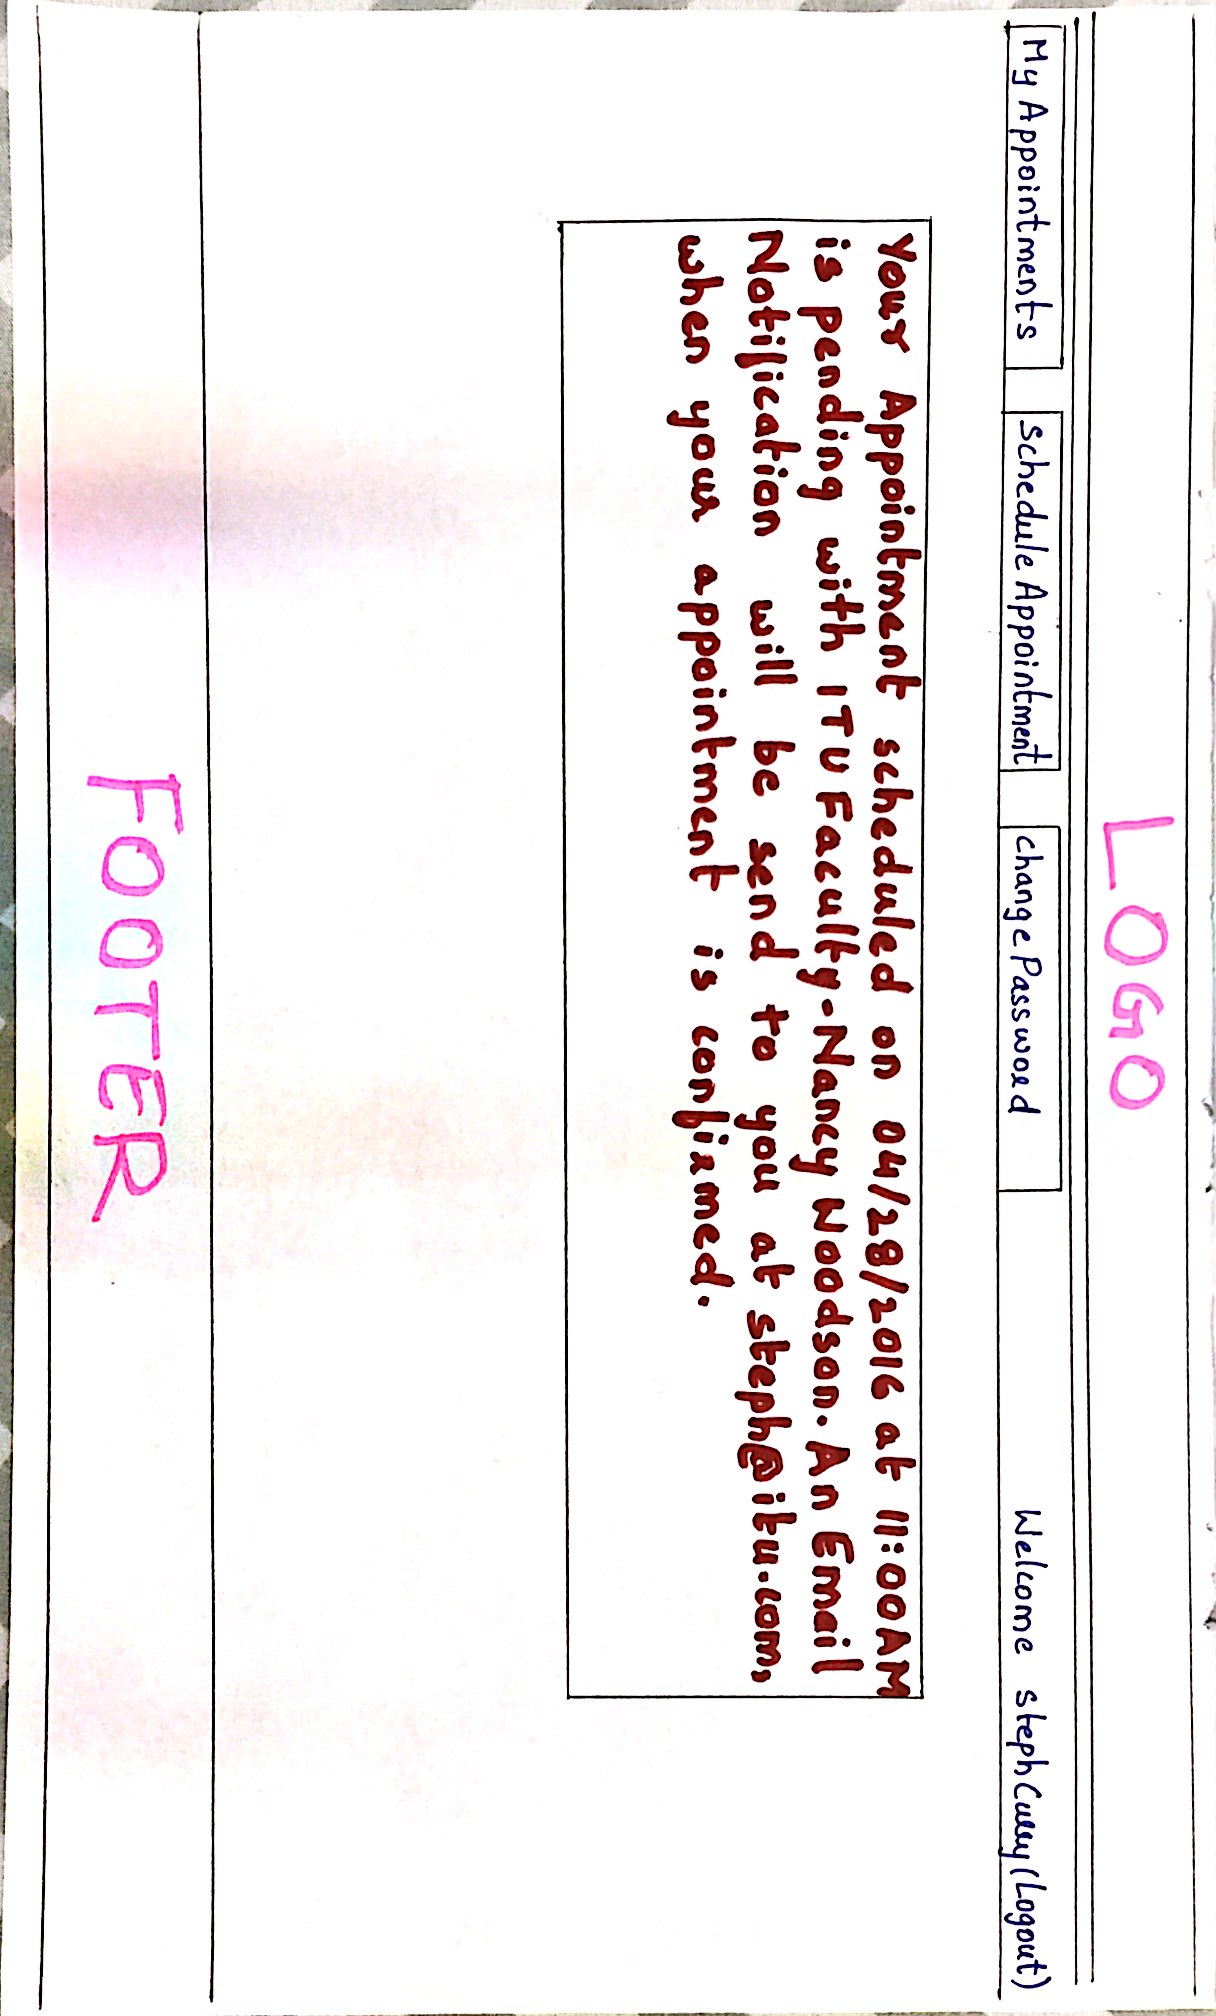 LOGO
My Appointments Schedule Appointment Change Password Welcome steph Curry (Logout)
Your Appointment scheduled on 04/28/2016 at 11:00AM
is pending with ITU Faculty-Nancy Woodson. An Email
Notification will be send to you at steph@itu.com,
when your appointment is confirmed.
FOOTER